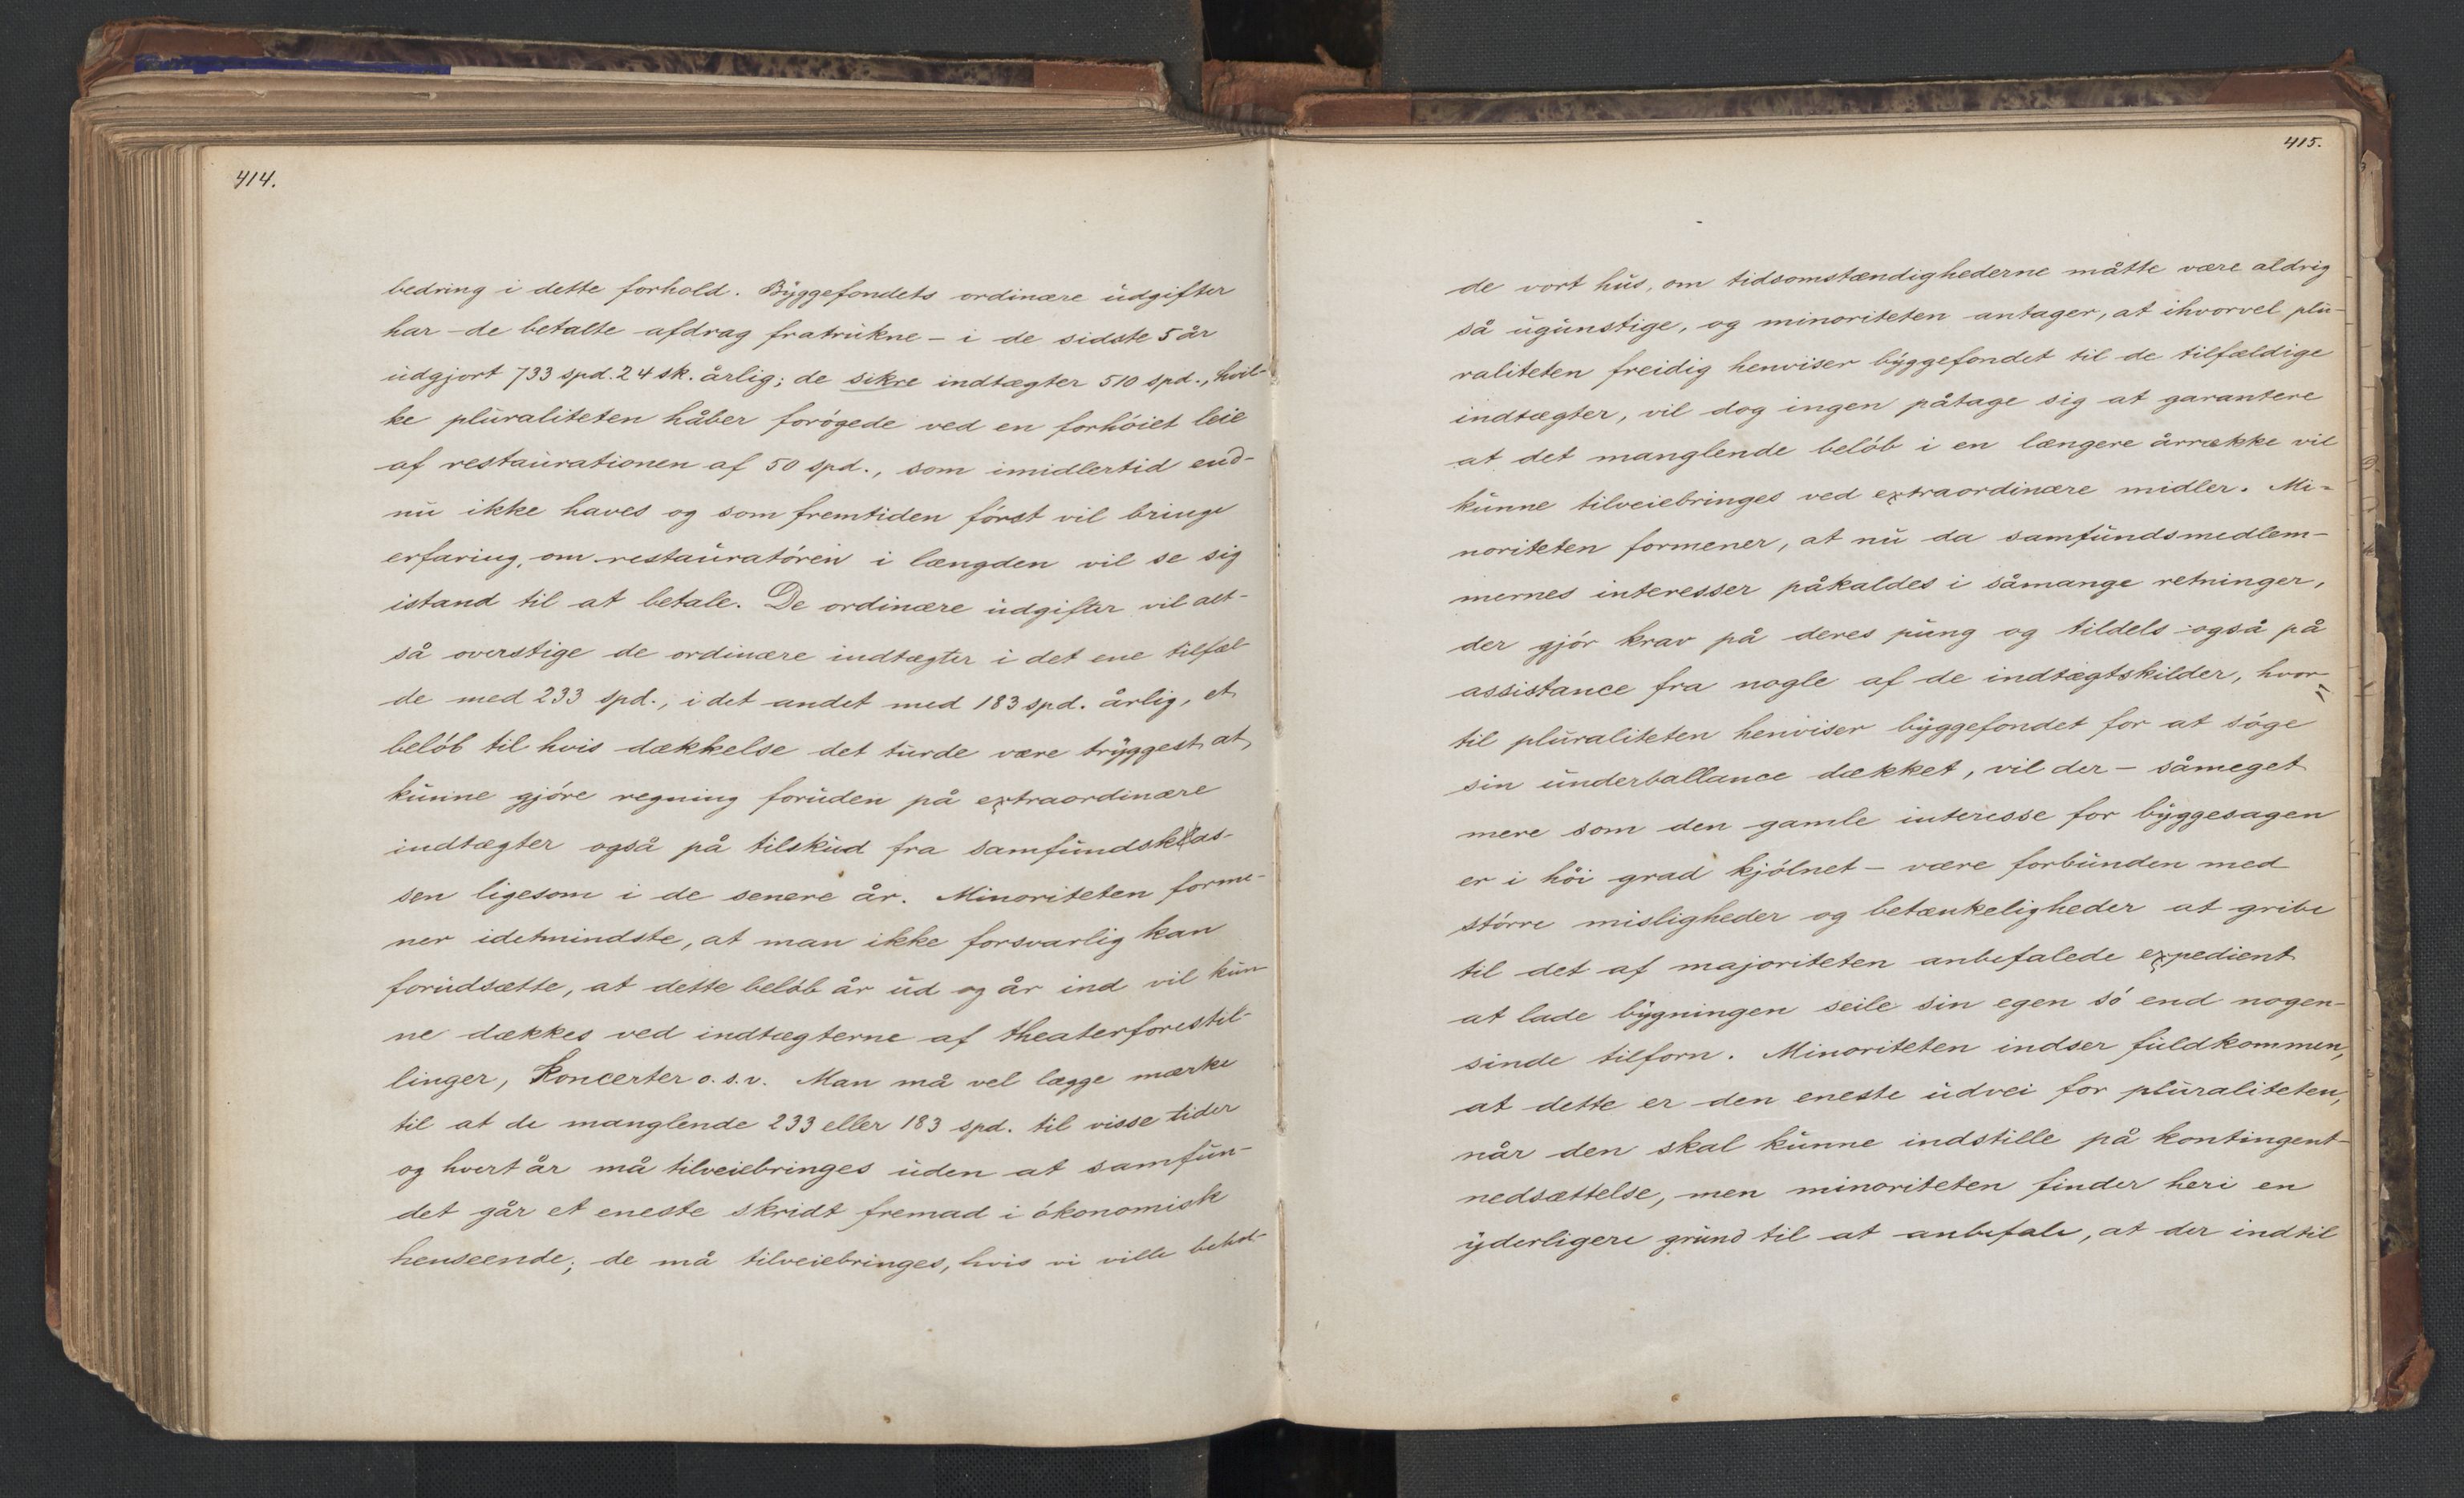 414.
bedring i dette forhold. Byggefondets ordinære udgifter
har – de betalte afdrag fratrukne – i de sidste 5 år
udgjort 733 spd. 24 sk. årlig; de sikre indtægter 510 spd., hvil-
ke pluraliteten håber forógede ved en forhóiet leie
af restaurationen af 50 spd., som imidlertid end-
nu ikke haves og som fremtiden fórst vil bringe
erfaring, om restauratóren i længden vil se sig
istand til at betale. De ordinære udgifter vil alt-
så overstige de ordinære indtægter i det ene tilfæl-
de med 233 spd., i det andet med 183 spd. årlig, et
belób til hvis dækkelse det turde være tryggest at
kunne gjóre regning foruden på extraordinære
indtægter også på tilskud fra samfundskas-
sen ligesom i de senere år. Minoriteten forme-
ner idetmindste, at man ikke forsvarlig kan
forudsætte, at dette belób år ud og år ind vil kun-
ne dækkes ved indtægterne af theaterforestil-
linger, Koncerter o.s.v. Man må vel lægge mærke
til at de manglende 233 eller 183 spd. til visse tider
og hvert år må tilveiebringes uden at samfun-
det går et eneste skridt fremad i ókonomisk
henseende; de må tilveiebringes, hvis vi ville behol-
415.
de vort hus, om tidsomstændighederne måtte være aldrig
så ugunstige, og minoriteten antager, at ihvorvel plu-
raliteten freidig henviser byggefondet til de tilfældige
indtægter, vil dog ingen påtage sig at garantere
at det manglende belób i en længere årrække vil
kunne tilveiebringes ved extraordinære midler. Mi-
noriteten formener, at nu da samfundsmedlem-
mernes interesser påkaldes i såmange retninger,
der gjór krav på deres pung og tildels også på
assistance fra nogle af de indtægtskilder, hvor-
til pluraliteten henviser byggefondet for at sóge
sin underballance dækket, vil der – såmeget
mere som den gamle interesse for byggesagen
er i hói grad kjólnet – være forbunden med
stórre misligheder og betænkeligheder at gribe
til det af majoriteten anbefalede expedient
at lade bygningen seile sin egen só end nogen-
sinde tilforn. Minoriteten indser fuldkommen,
at dette er den eneste udvei for pluraliteten,
når den skal kunne indstille på kontingent-
nedsættelse, men minoriteten finder heri en
yderligere grund til at anbefale, at der indtil